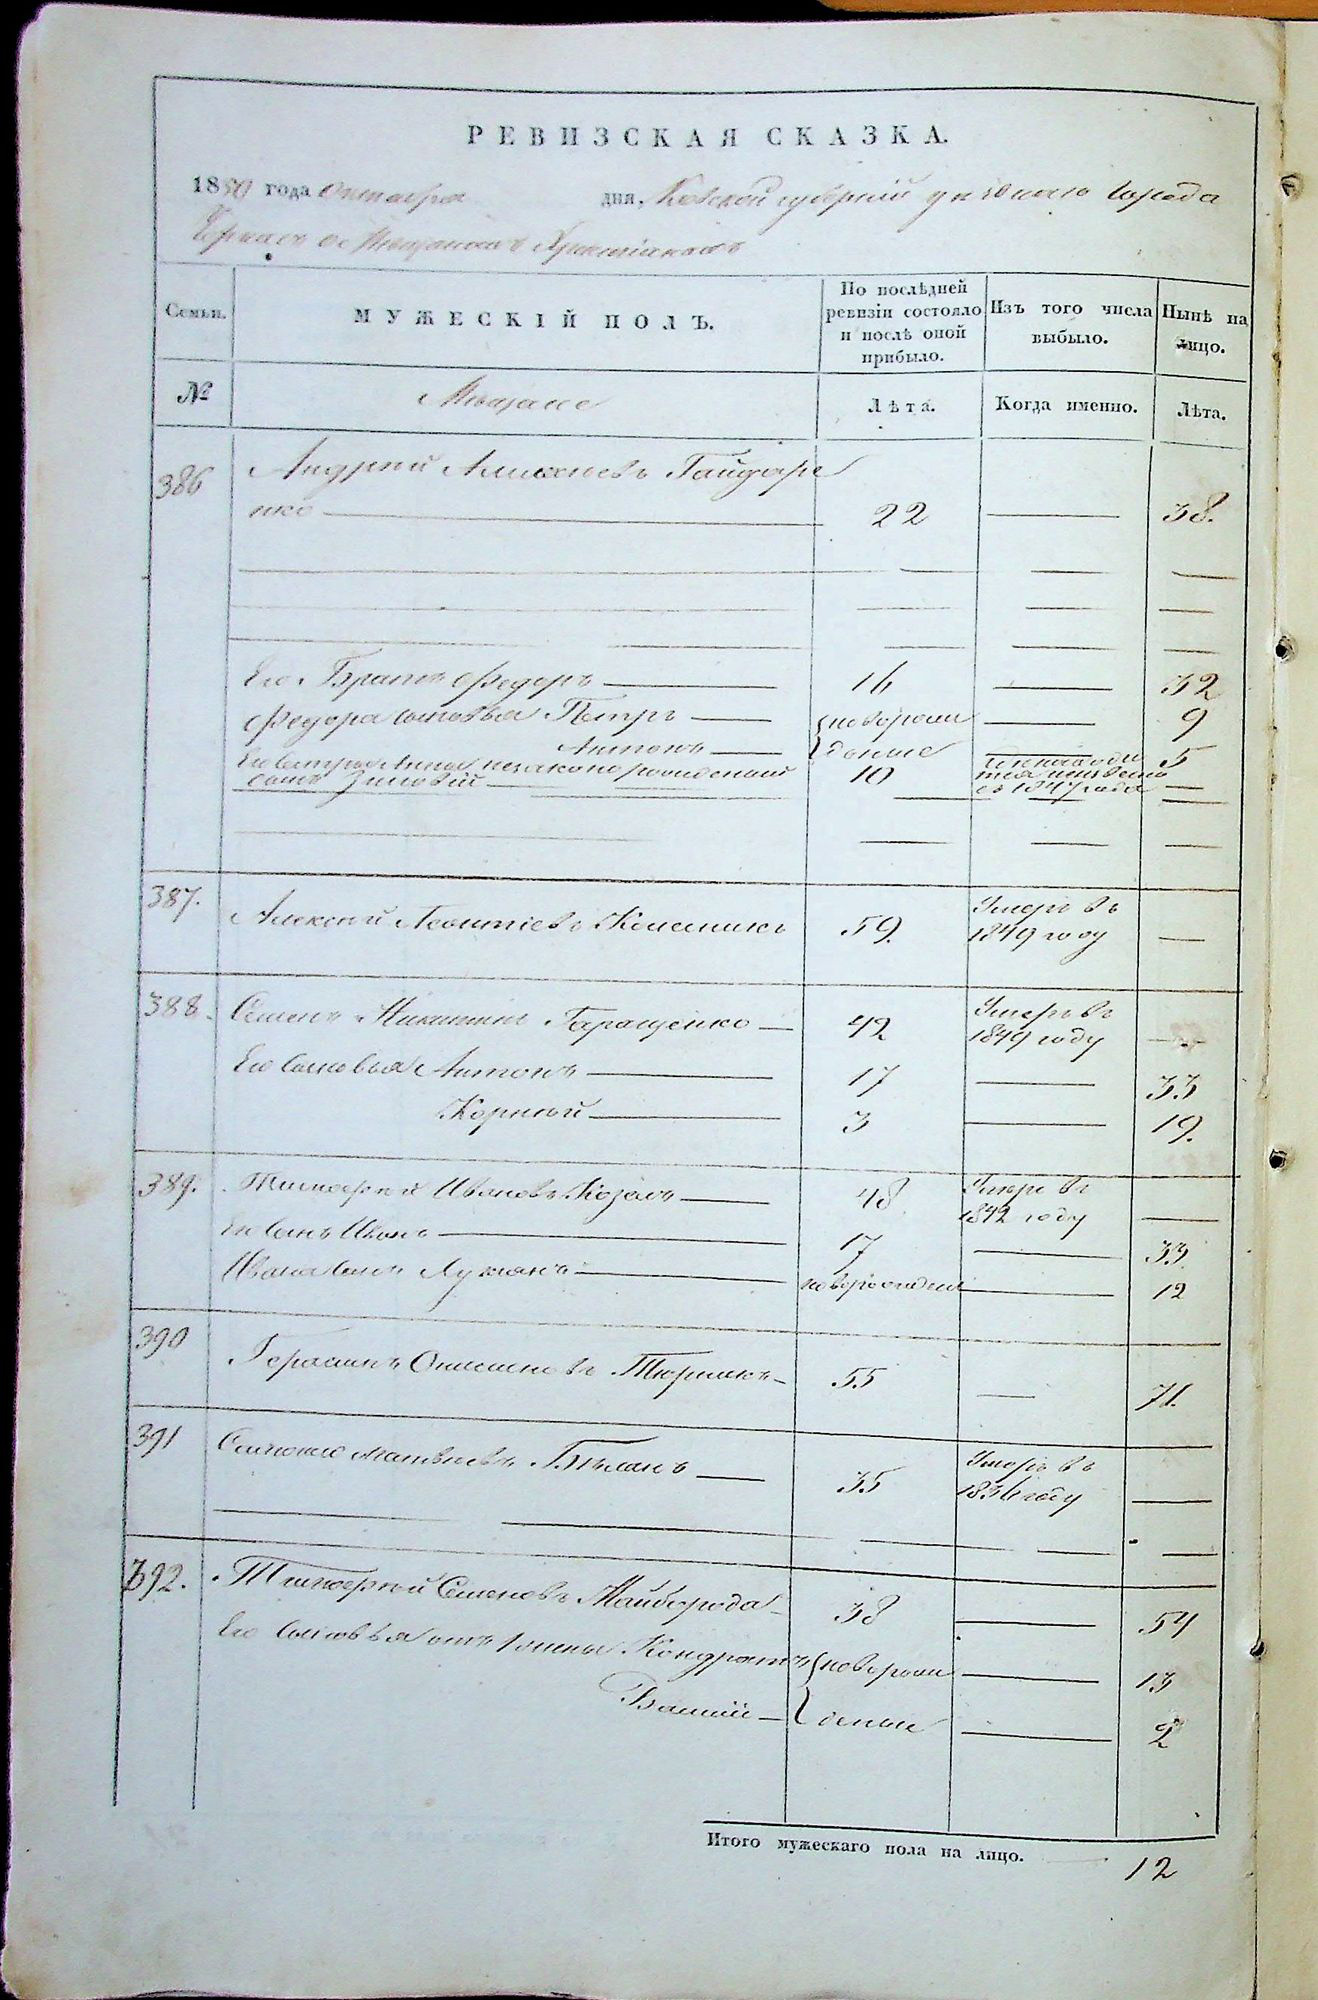 РЕВИЗСКАЯ СКАЗКА.
1850 года Октября дня, Кіевской губерніи уѣзднаго города
Черкасъ о Мѣщанахъ Христіанахъ
Семьи.
МУЖЕСКІЙ ПОЛЪ.
По послѣдней ревизіи состояло и послѣ оной прибыло.
Изъ того числа выбыло.
Нынѣ на лицо.
№
Мѣщане
Лѣта.
Когда именно.
Лѣта.
386
Андрей Алексѣевъ Гайдаре
нко 22 38.
Его Братъ Федоръ 16 32
Федора сыновья Петръ новорож 9
Антонъ денные 5
Его сестры Анны незаконорожденный
сынъ Зиновій 10
съ 1847 года
387. Алексѣй Леонтіевъ 59. Умеръ въ
1849 году
388. Семенъ Никитинъ Геращенко 42 Умеръ въ
1849 году
Его сыновья Антонъ 17 33
Корнѣй 3 19.
389. Тимофѣй Ивановъ Козелъ 48 Умеръ въ
1842 году
Его сынъ Иванъ 17 33.
Ивана сынъ Лукьянъ новорожденъ 12
390 Герасимъ Тюрмакъ 55 71.
391 Матвѣевъ Бѣланъ 35 Умеръ въ
1836 году
392. Тимофѣй Семеновъ Майборода 38 54
Его сыновья отъ 1 жены Кондратъ новорож 13
Василій денные 2
Итого мужескаго пола на лицо. 12